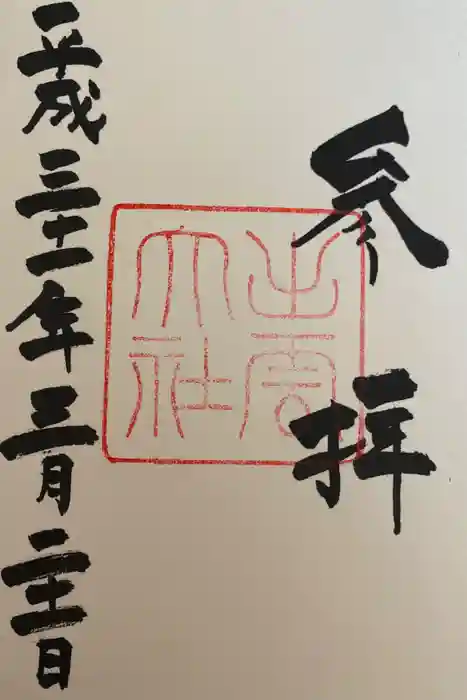 参拝
出雲大社
平成三十一年三月二十一日